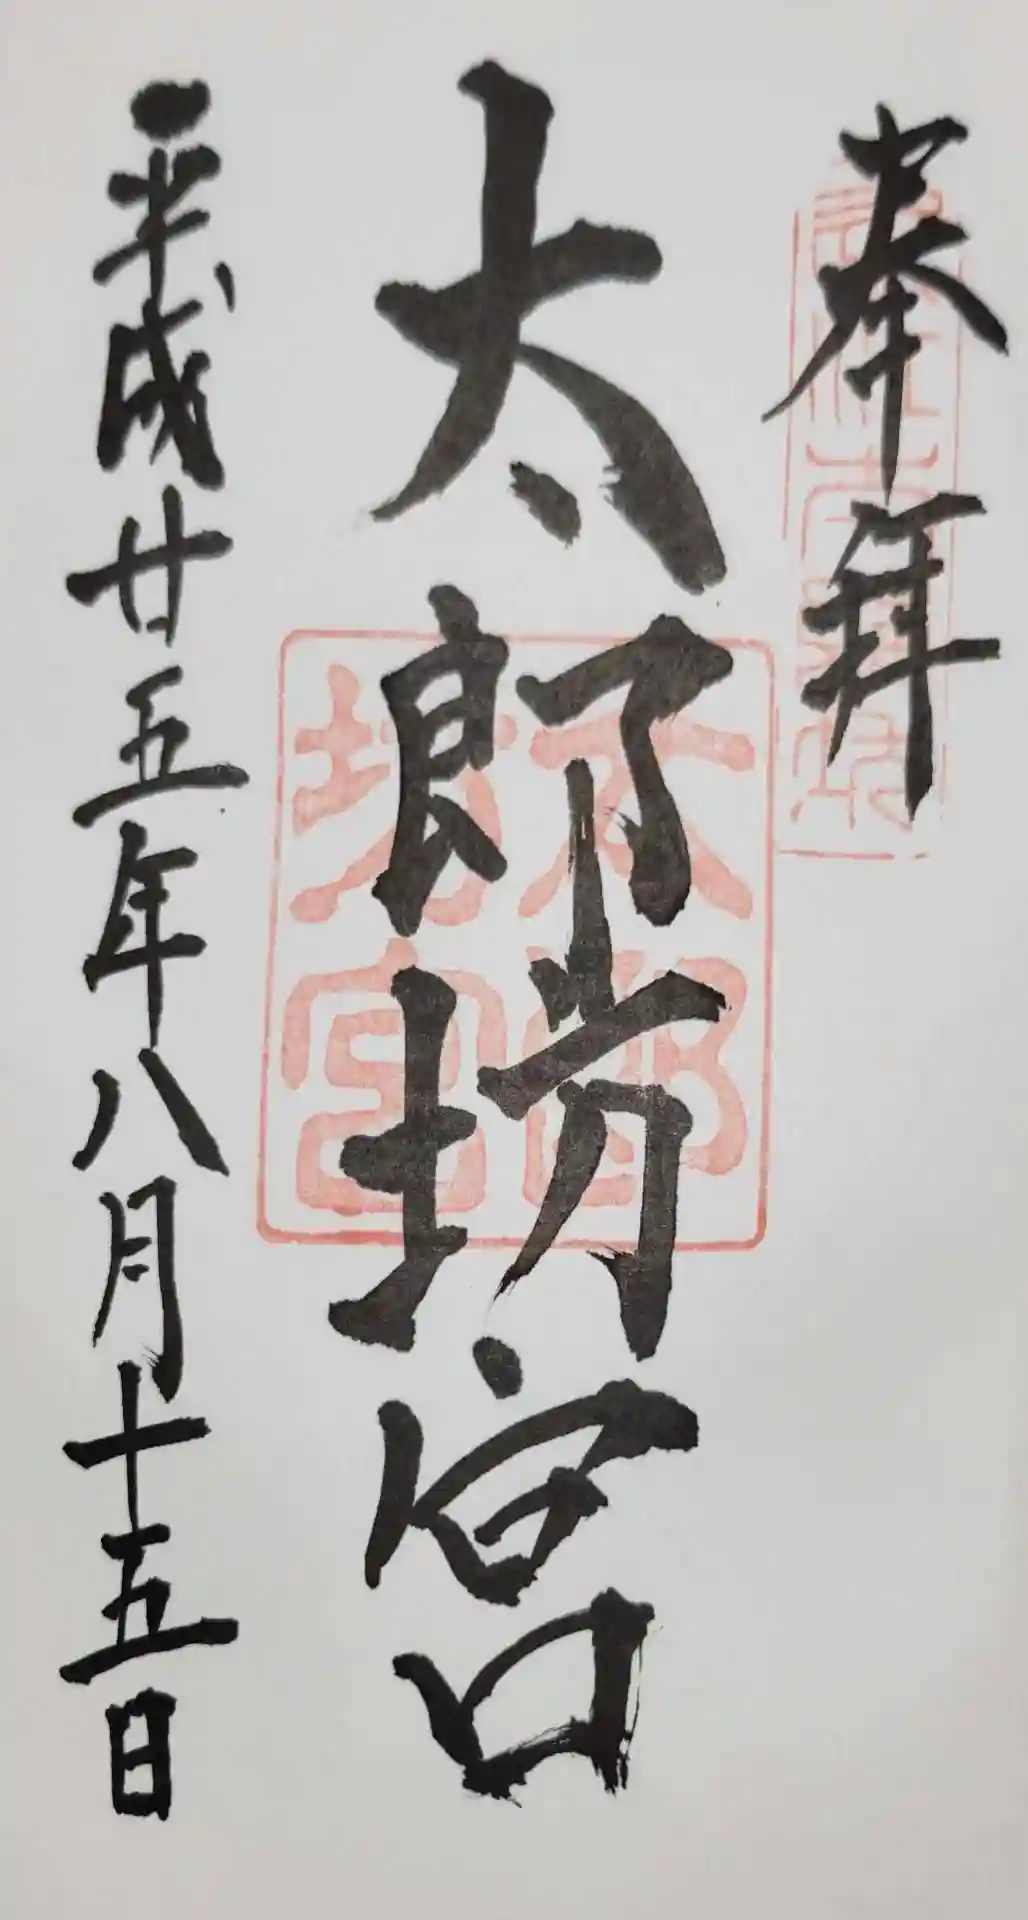 奉拝
太郎坊宮
太郎坊宮
平成廿五年八月十五日